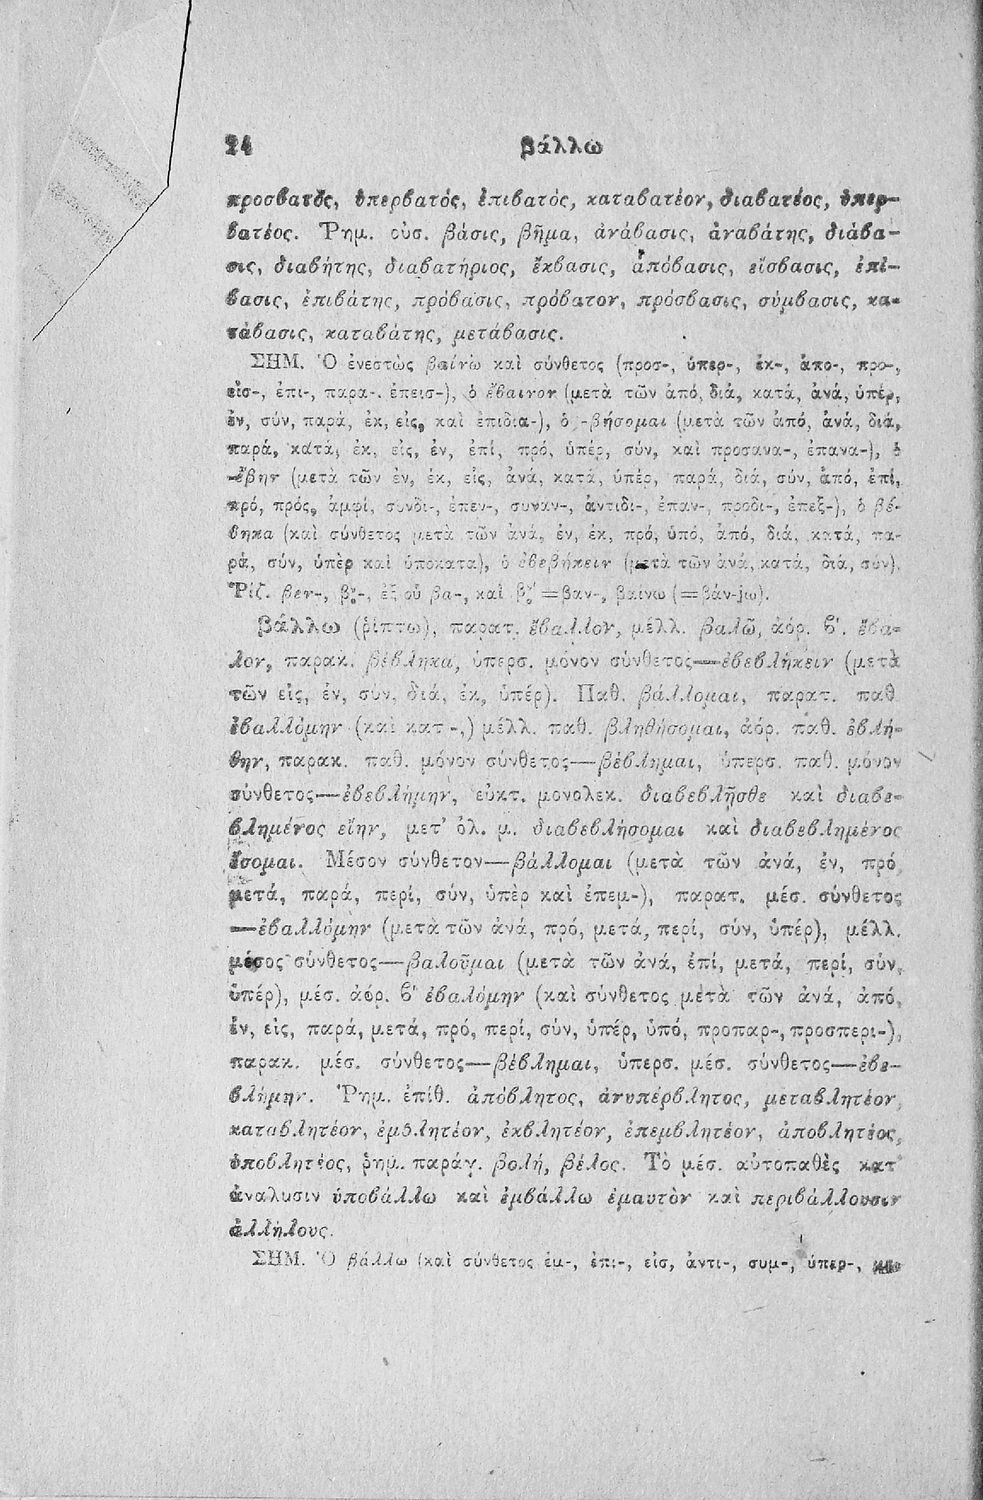 24 βάλλω
προσβατὸς, ὑπερβατός, ἐπιβατός, καταβατέον, διαβατέος, ὑπερ-
βατέος. Ῥημ. οὐσ. βάσις, βῆμα, ἀνάβασις, ἀναβάτης, διάβα-
σις, διαβήτης, διαβατήριος, ἔκβασις, ἀπόβασις, εἴσβασις, ἐπί-
βασις, ἐπιβάτης, πρόβασις, πρόβατον, πρόσβασις, σύμβασις, κα-
τάβασις, καταβάτης, μετάβασις.
ΣΗΜ. Ὁ ἐνεστὼς βαίνω καὶ σύνθετος (προς-, ὑπερ-, ἐκ-, ἀπο-, προ-,
εἰσ-, ἐπι-, παρα-, ἐπεισ-), ὁ ἔβαινον (μετὰ τῶν ἀπό, διά, κατά, ἀνά, ὑπέρ,
ἐν, σύν, παρά, ἐκ, εἰς, καὶ ἐπιδια-), ὁ -βήσομαι (μετὰ τῶν ἀπό, ἀνά, διά,
παρά, κατά, ἐκ, εἰς, ἐν, ἐπί, πρό, ὑπέρ, σύν, καὶ προσανα-, ἐπανα-), ὁ
-έβην (μετὰ τῶν ἐν, ἐκ, εἰς, ἀνά, κατά, ὑπέρ, παρά, διά, σύν, ἀπό, ἐπί,
πρό, πρός, ἀμφί, συνδι-, ἐπεν-, συναν-, ἀντιδι-, ἐπαν-, προδι-, ἐπεξ-), ὁ βέ-
βηκα (καὶ σύνθετος μετὰ τῶν ἀνά, ἐν, ἐκ, πρό, ὑπό, ἀπό, διά, κατά, πα-
ρά, σύν, ὑπὲρ καὶ ὑποκατα), ὁ ἐβεβήκειν (μετὰ τῶν ἀνά, κατά, διά, σύν).
Ῥίζ. βεν-, ἐξ οὗ βα-, καὶ =βαν-, βαίνω (=βάν-jω).
βάλλω (ῥίπτω), παρατ. ἔβαλλον, μέλλ. βαλῶ, ἀόρ. β'. ἔβα-
λον, παρακ. βέβληκα, ὑπερσ. μόνον σύνθετος—ἐβεβλήκειν (μετὰ
τῶν εἰς, ἐν, σύν, διά, ἐκ, ὑπέρ). Παθ. βάλλομαι, παρατ. παθ
ἐβαλλόμην (καὶ κατ-,) μέλλ. παθ. βληθήσομαι, ἀόρ. παθ. ἐβλή-
θην, παρακ. παθ. μόνον σύνθετος—βέβλημαι, ὑπερσ. παθ. μόνον
σύνθετος—ἐβεβλήμην, εὐκτ. μονολεκ. διαβεβλῇσθε καὶ διαβε-
βλημένος εἴην, μετ' ὀλ. μ. διαβεβλήσομαι καὶ διαβεβλημένος
ἔσομαι. Μέσον σύνθετον—βάλλομαι (μετὰ τῶν ἀνά, ἐν, πρό,
μετά, παρά, περί, σύν, ὑπὲρ καὶ ἐπεμ-), παρατ. μέσ. σύνθετος
—ἐβαλλόμην (μετὰ τῶν ἀνά, πρό, μετά, περί, σύν, ὑπέρ), μέλλ.
μέσος σύνθετος—βαλοῦμαι (μετὰ τῶν ἀνά, ἐπί, μετά, περί, σύν,
ὑπέρ), μέσ. ἀόρ. β' ἐβαλόμην (καὶ σύνθετος μετὰ τῶν ἀνά, ἀπό,
ἐν, εἰς, παρά, μετά, πρό, περί, σύν, ὑπέρ, ὑπό, προπαρ-, προσπερι-),
παρακ. μέσ. σύνθετος—βέβλημαι, ὑπερσ. μέσ. σύνθετος—ἐβε-
βλήμην. Ῥημ. ἐπίθ. ἀπόβλητος, ἀνυπέρβλητος, μεταβλητέον,
καταβλητέον, ἐμβλητέον, ἐκβλητέον, ἐπεμβλητέον, ἀποβλητέος,
ὑποβλητέος, ῥημ. παράγ. βολή, βέλος. Τὸ μέσ. αὐτοπαθὲς κατ'
ἀνάλυσιν ὑποβάλλω καὶ ἐμβάλλω ἐμαυτὸν καὶ περιβάλλουσιν
ἀλλήλους.
ΣΗΜ. Ὁ βάλλω (καὶ σύνθετος ἐμ-, ἐπι-, εἰσ, ἀντι-, συμ-, ὑπερ-,